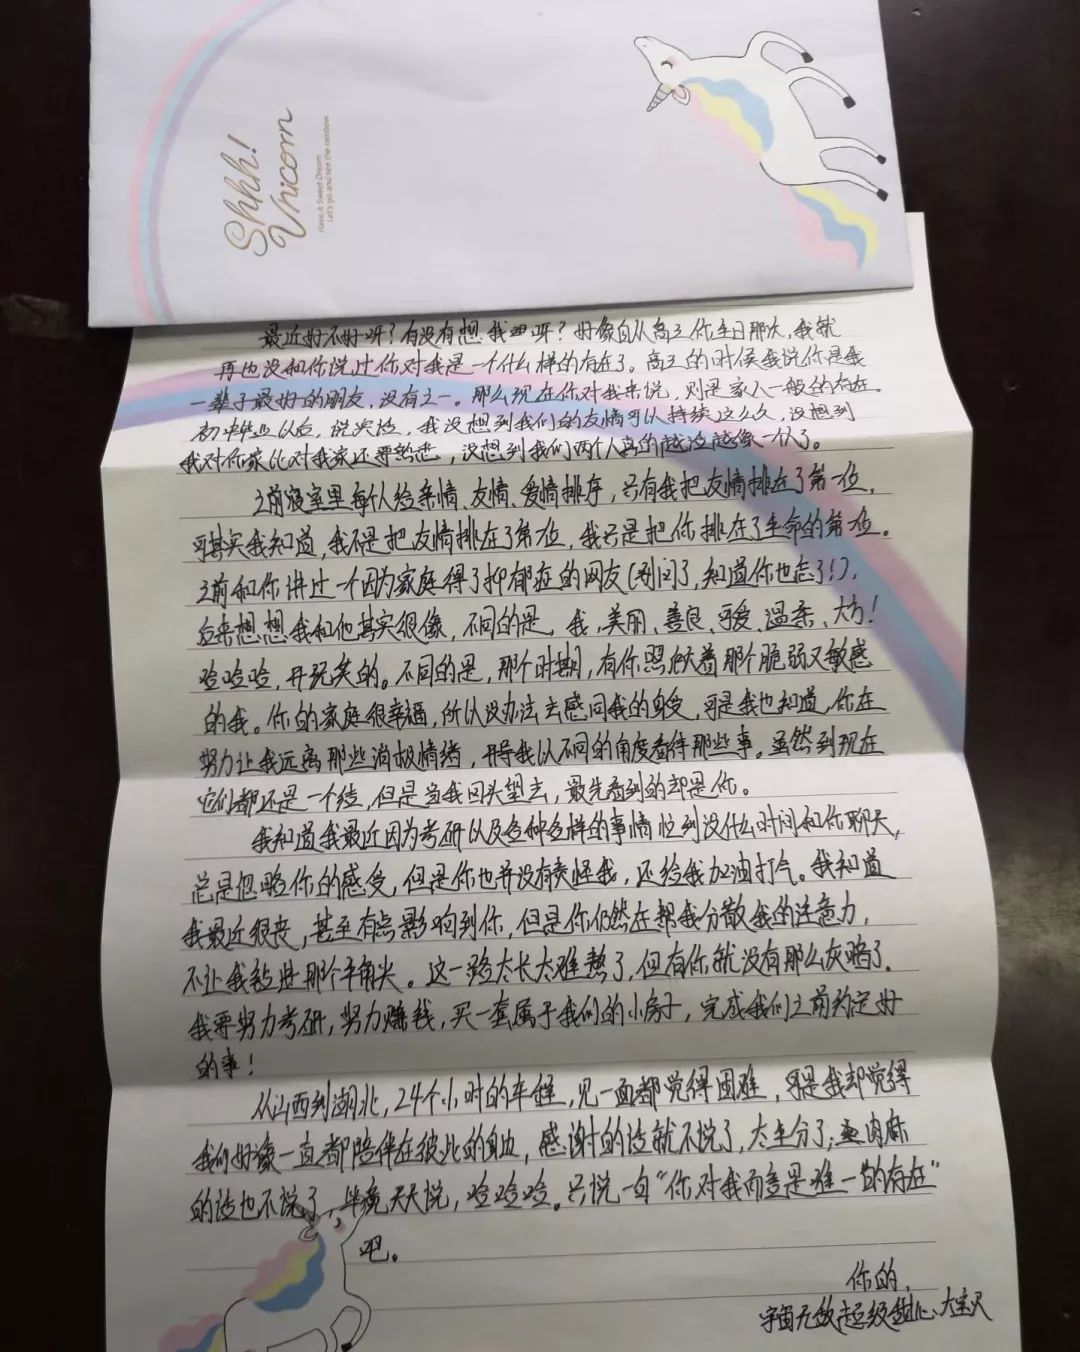 Shhh!
Unicorn
Have A Sweet Dream
Let's go and see the rainbow
最近好不好呀？有没有想我呀？好像自从高三你生日那次，我就
再也没和你说过你对我是一个什么样的存在了。高三的时候我说你是我
一辈子最好的朋友，没有之一。那么现在你对我来说，则是家人一般的存在。
初中毕业以后，说实话，我没想到我们的友情可以持续这么久，没想到
我对你家比对我家还要熟悉，没想到我们两个人真的越活越像一个人了。
之前寝室里每个人给亲情、友情、爱情排序，只有我把友情排在了第一位，
可其实我知道，我不是把友情排在了第一位，我只是把你排在了生命的第一位。
之前和你讲过一个因为家庭得了抑郁症的网友（别问了，知道你也忘了！），
后来想想我和他其实很像，不同的是，我，美丽、善良、可爱、温柔、大方！
哈哈哈，开玩笑的。不同的是，那个时期，有你照顾着那个脆弱又敏感
的我。你的家庭很幸福，所以没办法去感同我的身受，可是我也知道，你在
努力让我远离那些消极情绪，开导我以不同的角度看待那些事。虽然到现在
它们都还是一个结，但是当我回头望去，最先看到的却是你。
我知道我最近因为考研以及各种各样的事情忙到没什么时间和你聊天，
总是忽略你的感受，但是你也并没有责怪我，还给我加油打气。我知道
我最近很丧，甚至有点影响到你，但是你仍然在帮我分散我的注意力，
不让我钻进那个牛角尖。这一路太长太难熬了，但有你就没有那么灰暗了。
我要努力考研，努力赚钱，买一套属于我们的小房子，完成我们之前约定好
的事！
从山西到湖北，24个小时的车程，见一面都觉得困难，可是我却觉得
我们好像一直都陪伴在彼此的身边，感谢的话就不说了，太生分了；肉麻
的话也不说了，毕竟天天说，哈哈哈。只说一句“你对我而言是唯一的存在”
吧。
你的，
宇宙无敌超级甜心大宝贝